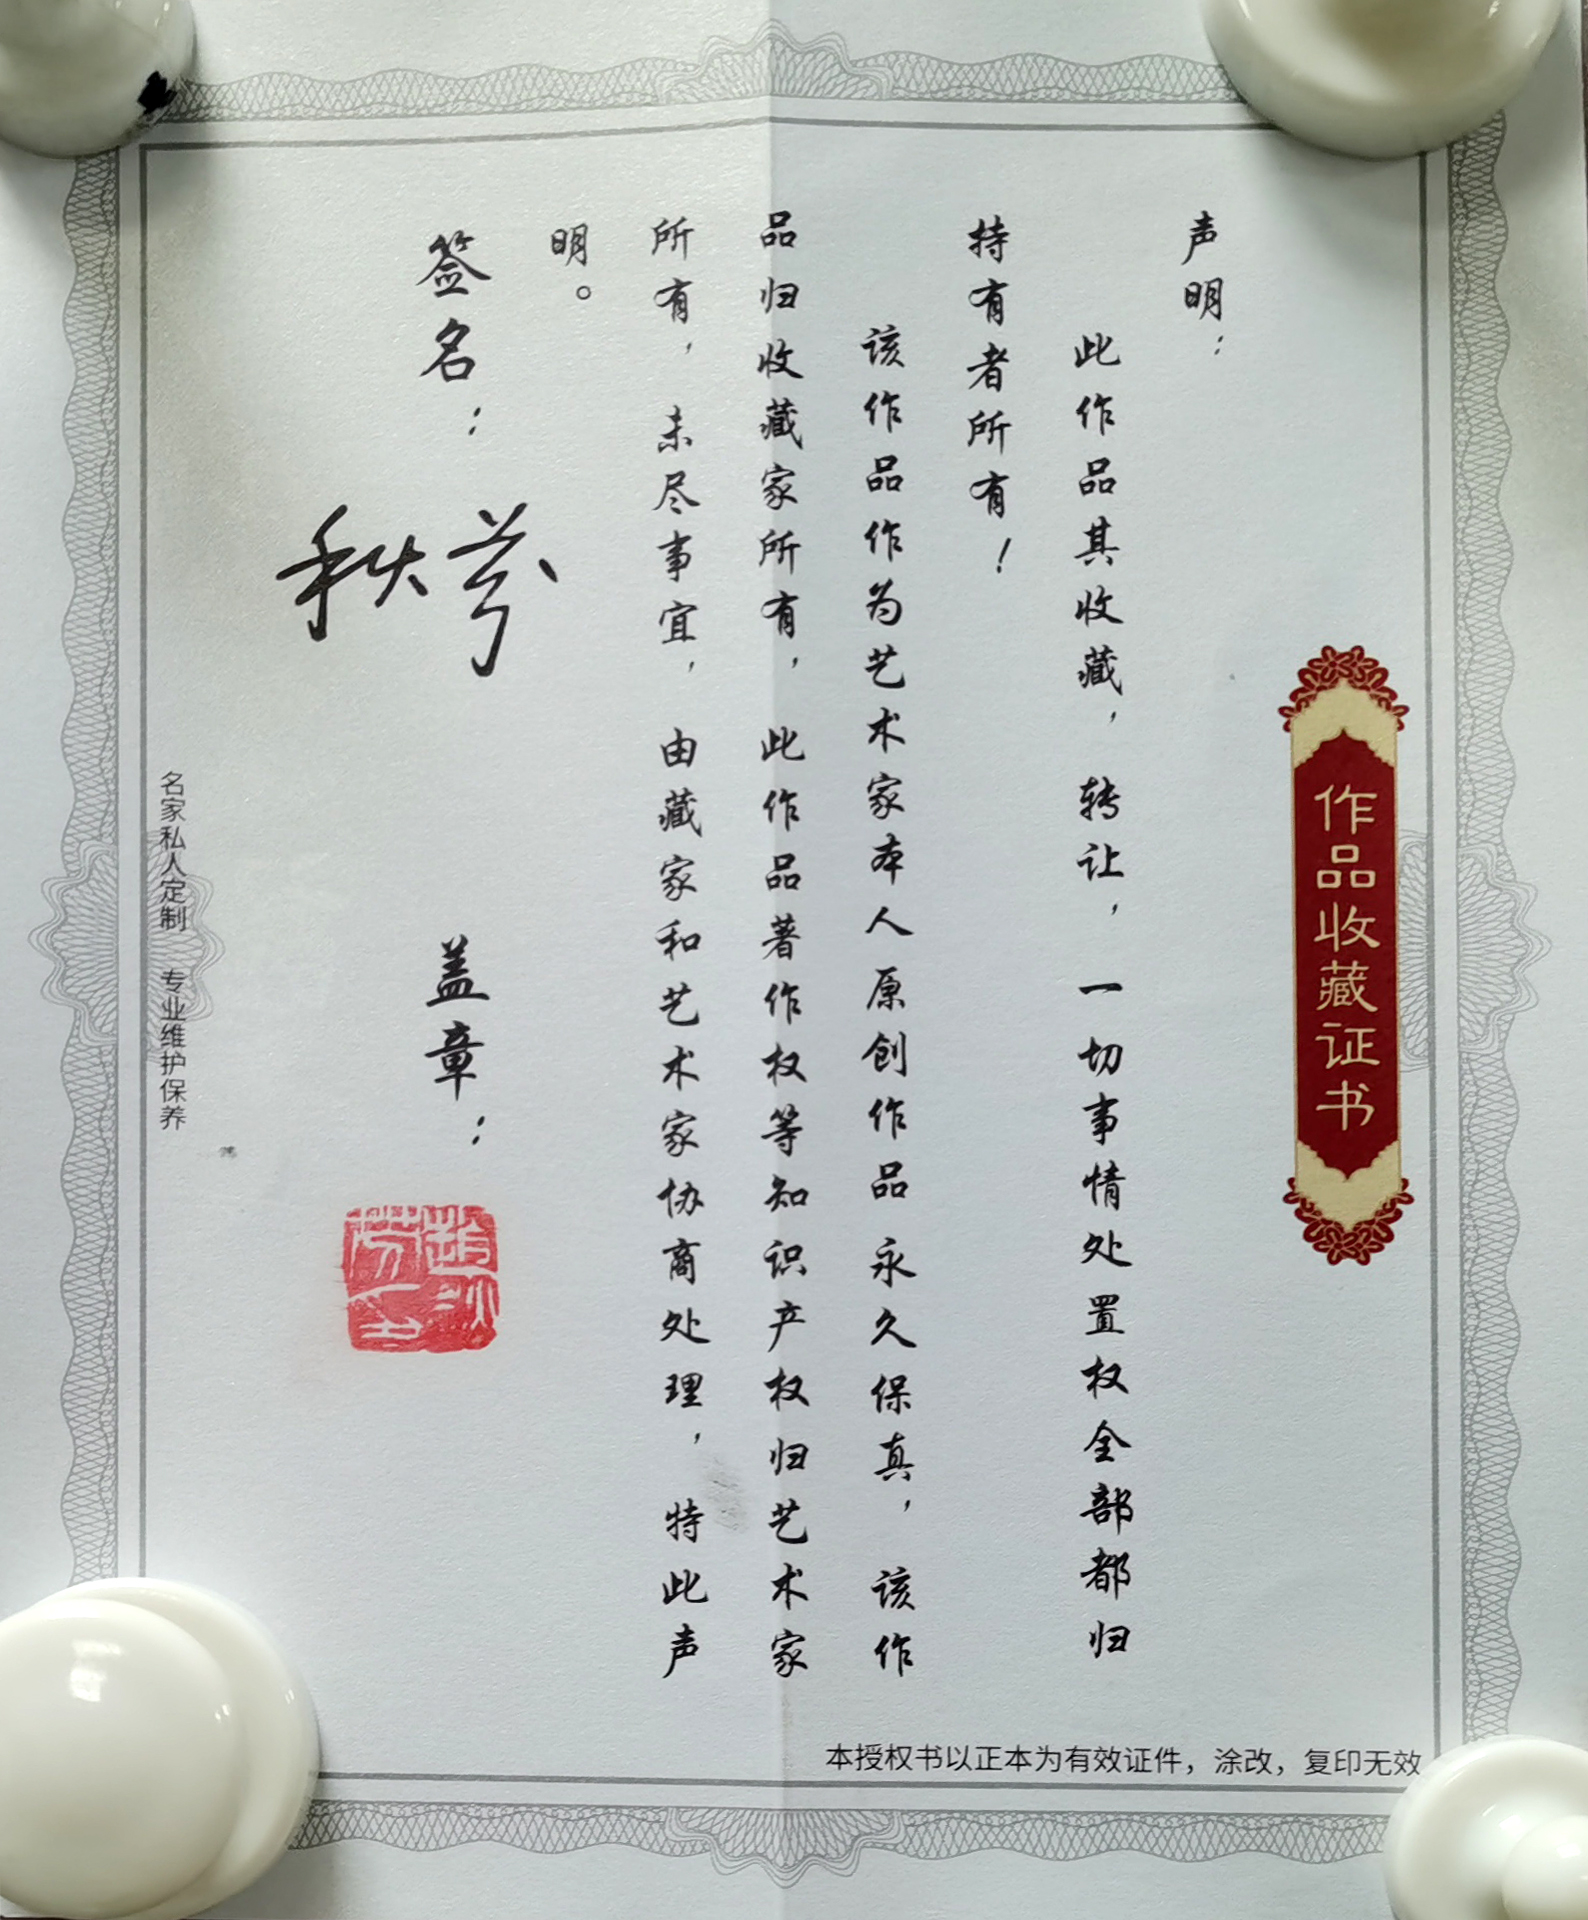 作品收藏证书
声明：
此作品其收藏，转让，一切事情处置权全部都归
持有者所有！
该作品作为艺术家本人原创作品永久保真，该作
品归收藏家所有，此作品著作权等知识产权归艺术家
所有，未尽事宜，由藏家和艺术家协商处理，特此声
明。
签名：
秋芬
盖章：
名家私人定制 专业维护保养
本授权书以正本为有效证件，涂改，复印无效